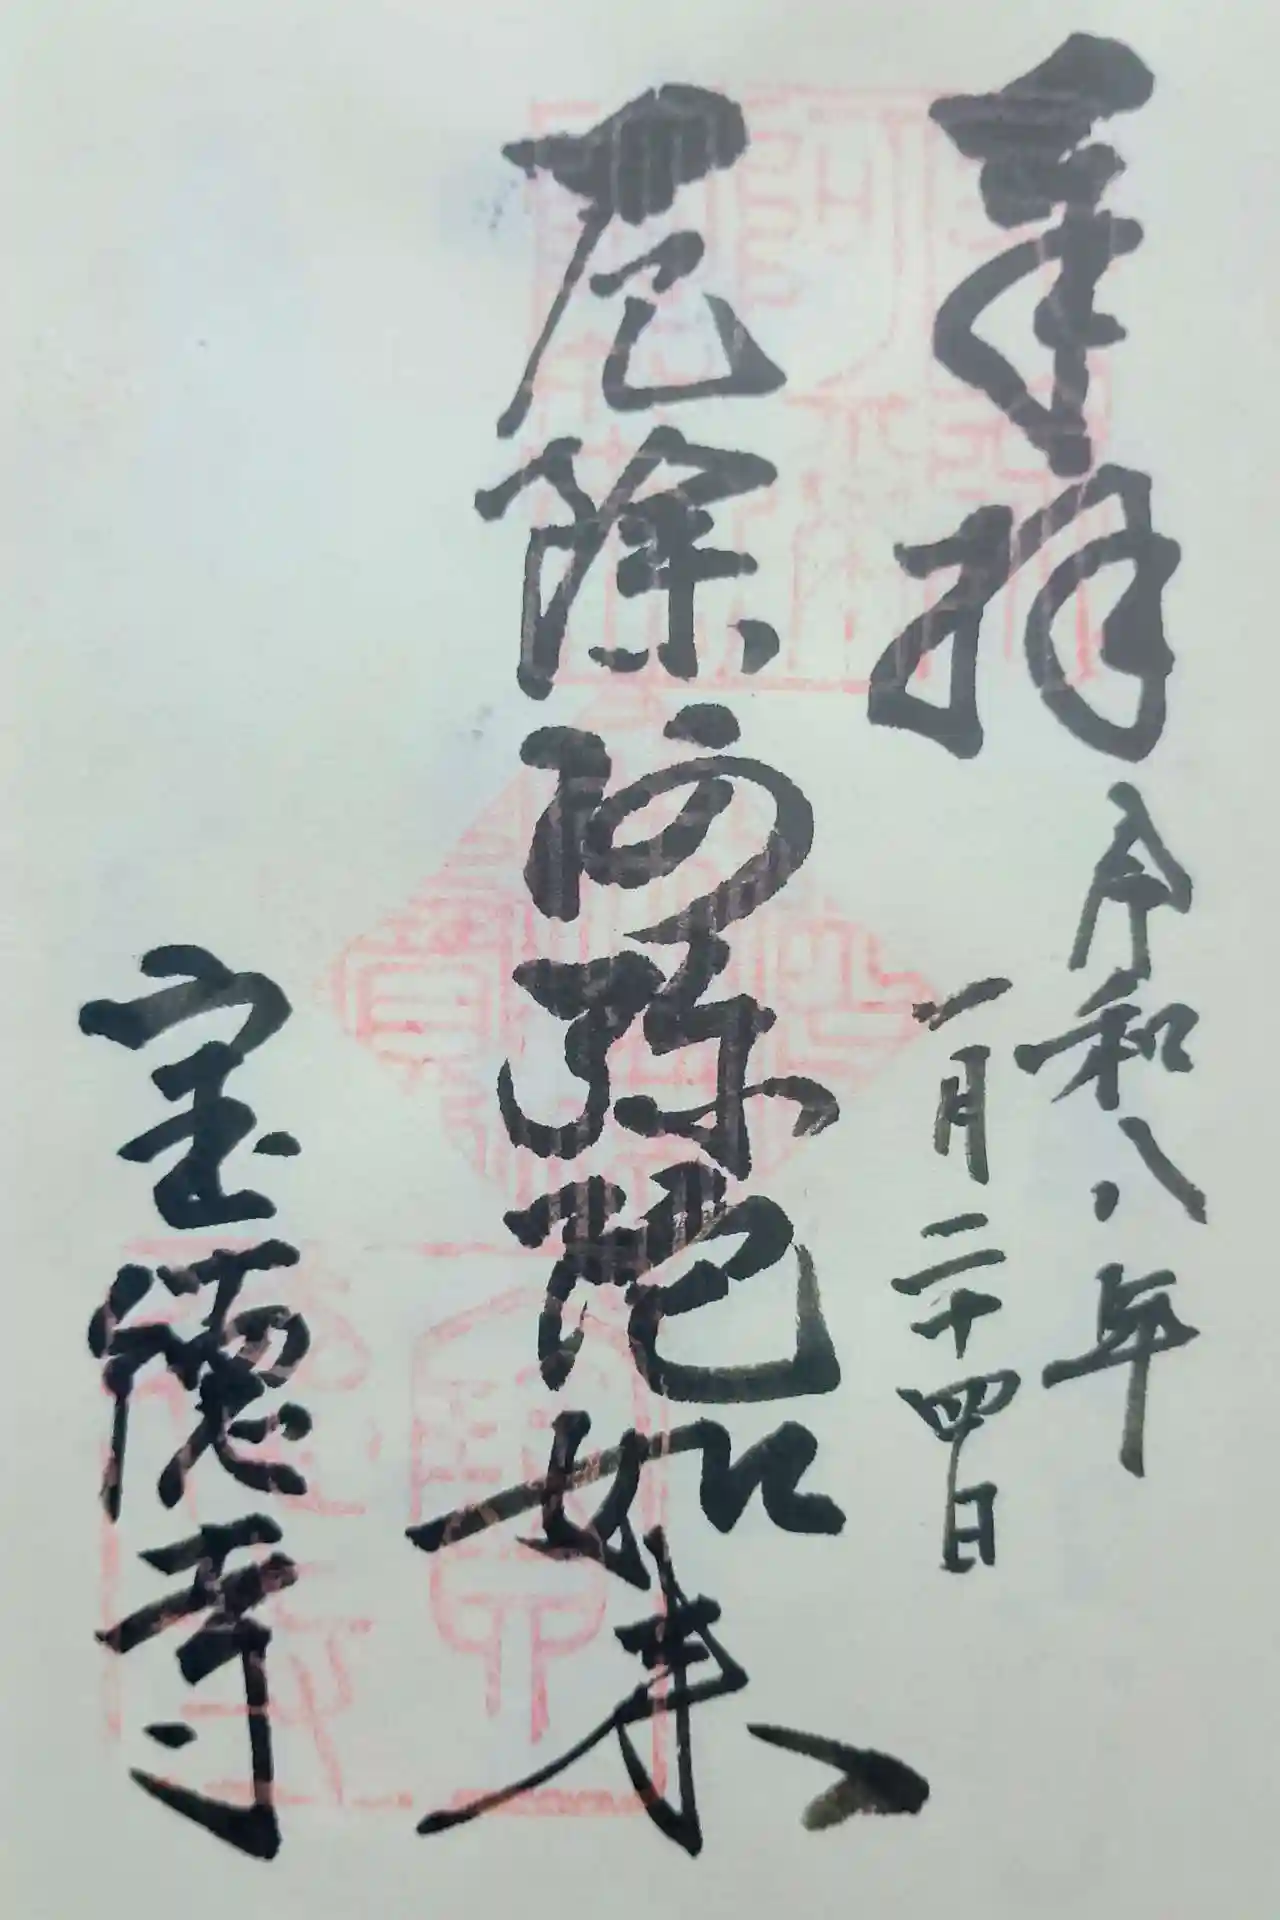 奉拝
令和八年
一月二十四日
厄除阿弥陀如来
宝徳寺